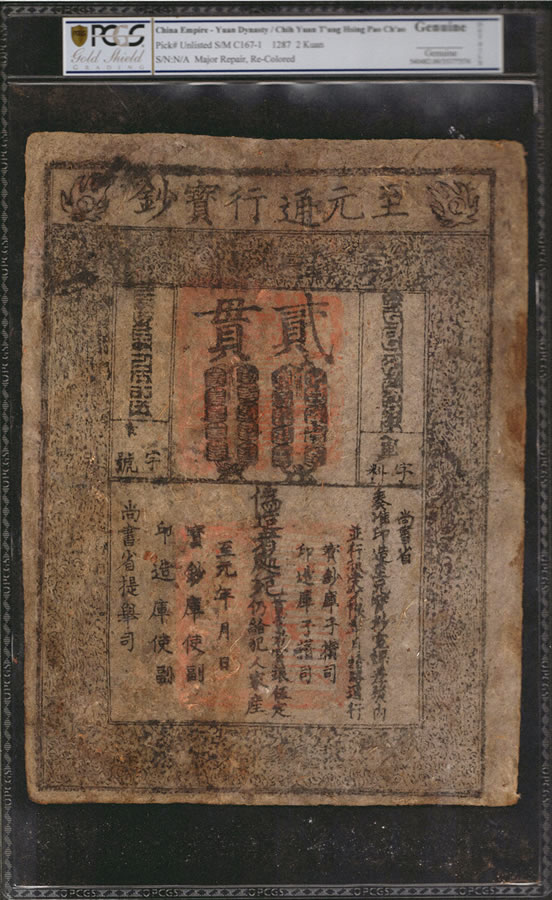 PCGS
Gold Shield
GRADING
China Empire - Yuan Dynasty / Chih Yuan T'ung Hsing Pao Ch'ao
Pick# Unlisted S/M C167-1 1287 2 Kuan
S/N:N/A Major Repair, Re-Colored
Genuine
Genuine
至元通行寶鈔
貳貫
字料
字號
尚書省
奏准印造至元寶鈔宣課差發內
並行收受不限年月諸路通行
寶鈔庫子攢司
印造庫子攢司
偽造者處死
首告者賞銀伍定
仍給犯人家產
至元 年 月 日
寶鈔庫使副
印造庫使副
尚書省提舉司